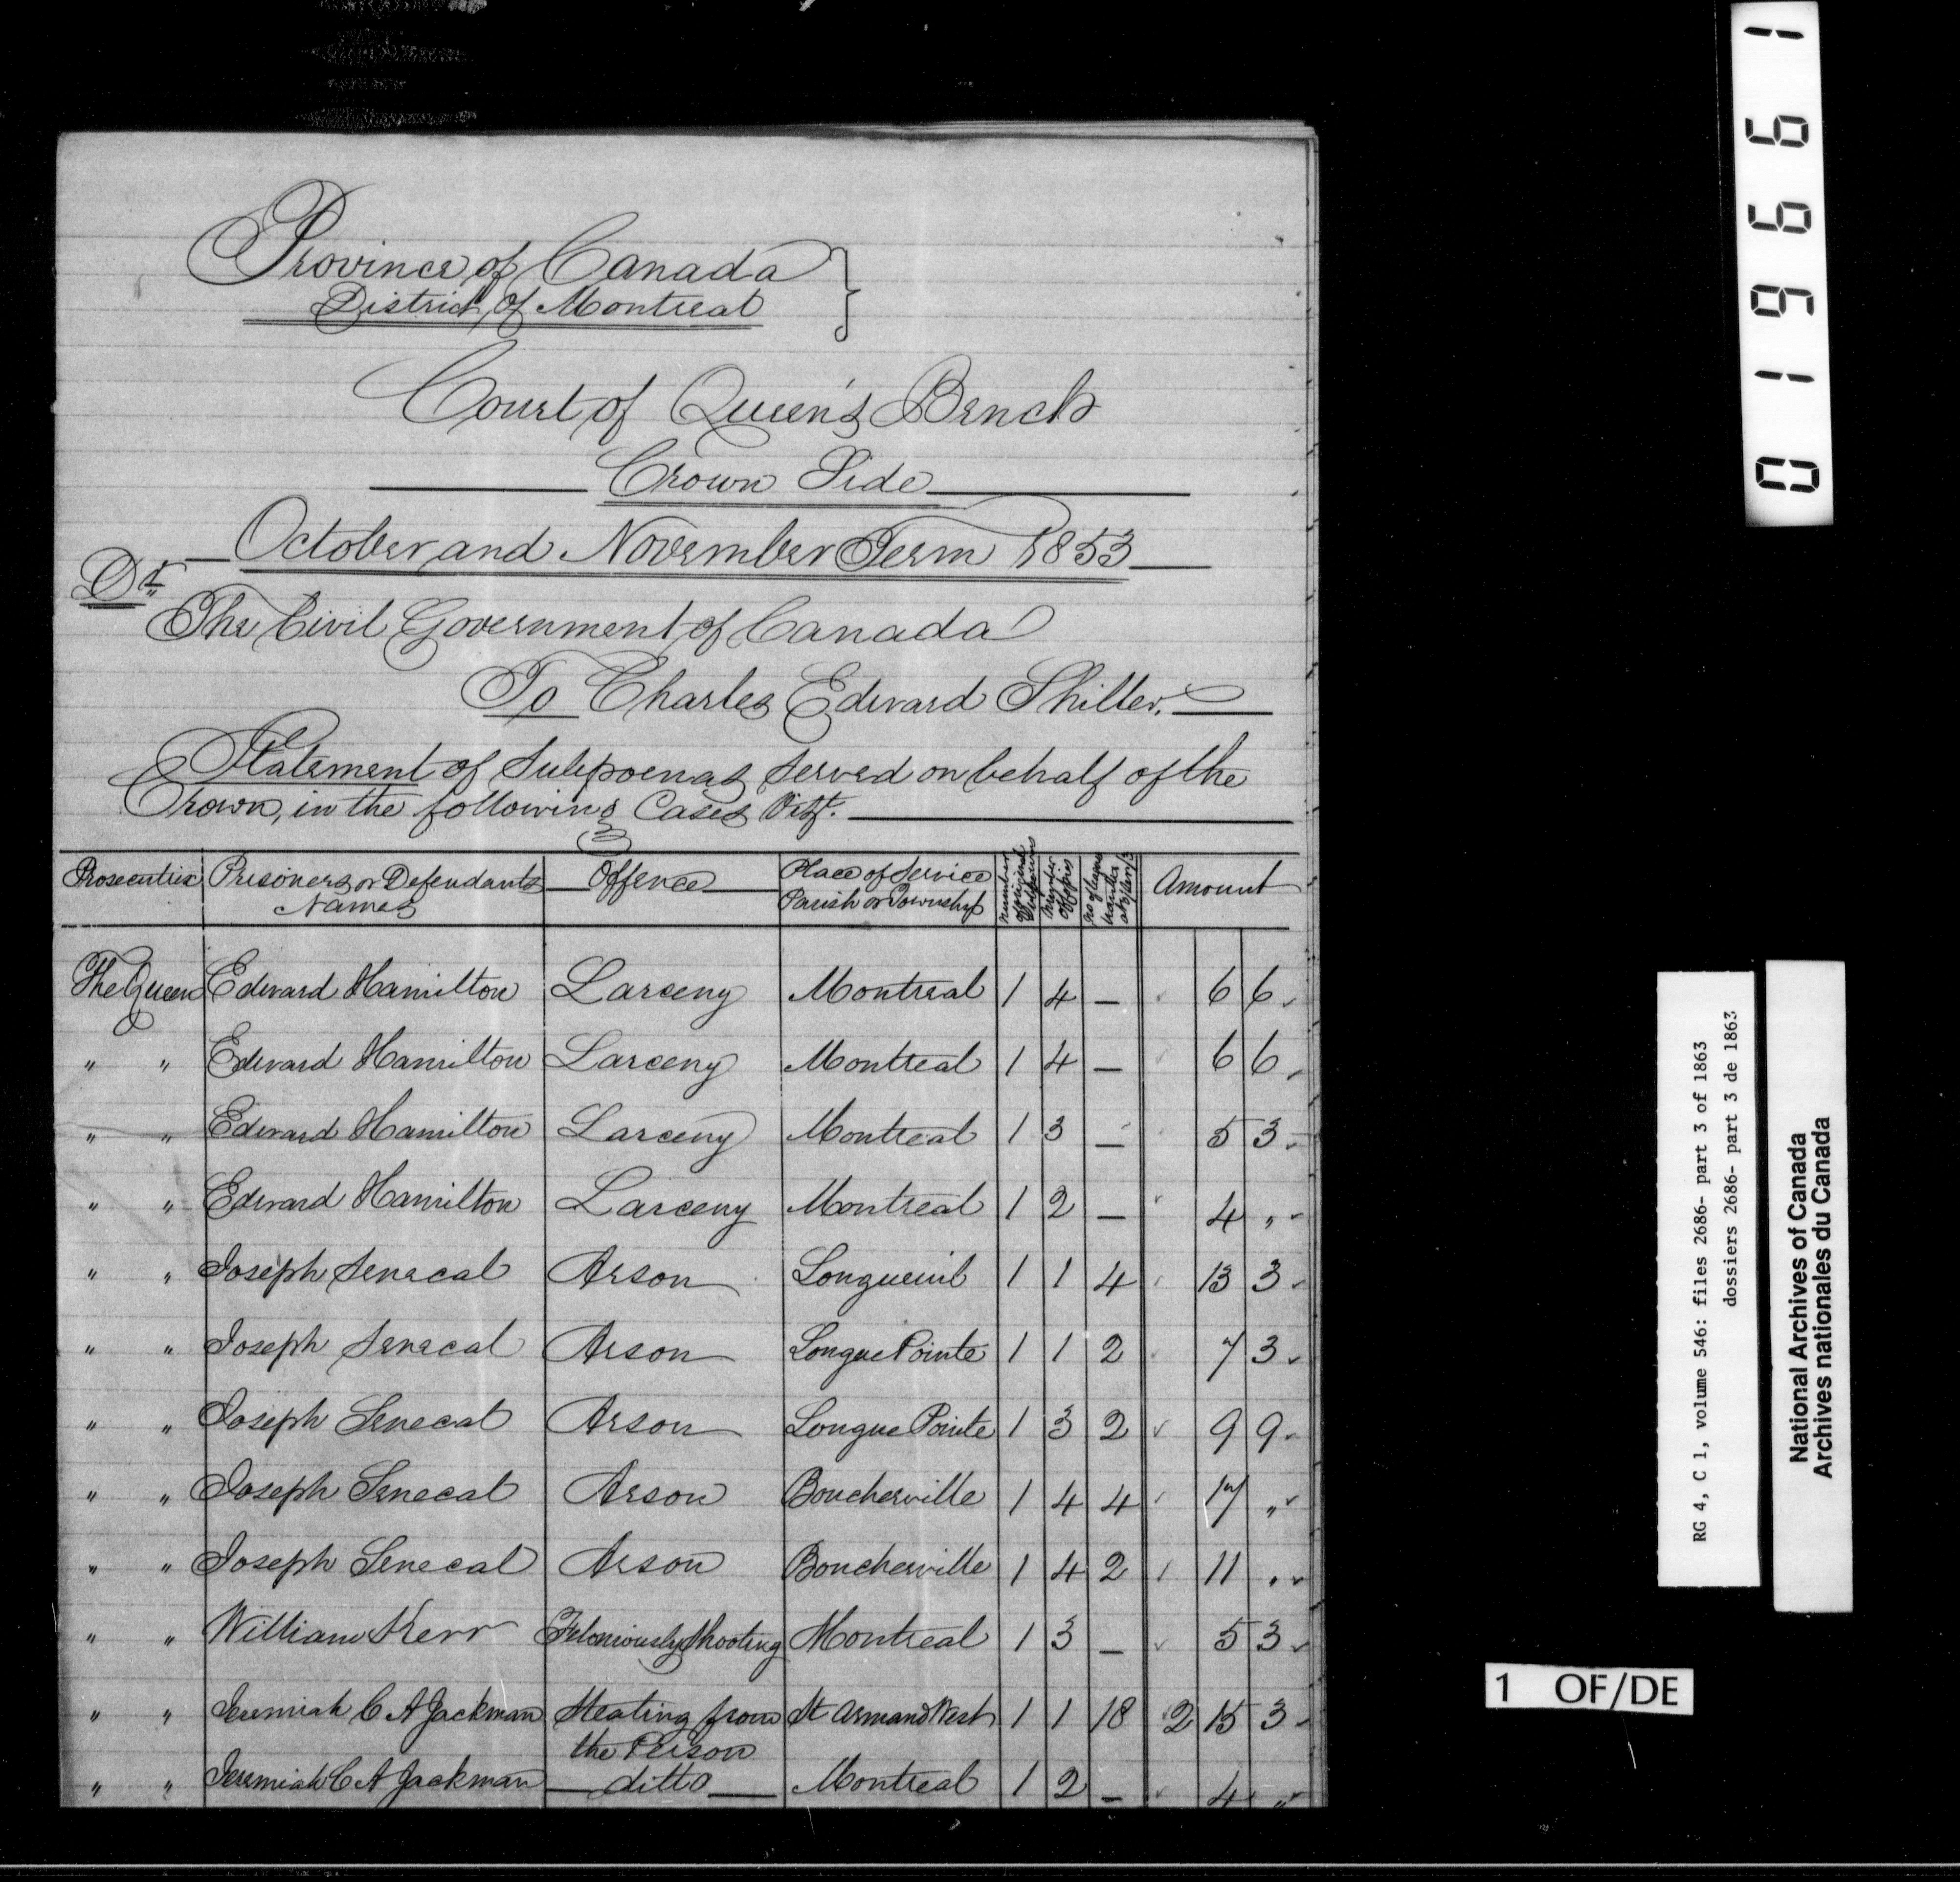 Province of Canada
District of Montreal
Court of Queen's Bench
Crown Side
October and November Term 1853
Dr
The Civil Government of Canada
To Charles Edward Shiller.
Statement of Subpoenas served on behalf of the
Crown, in the following Cases Vizt.
Prosecutrix | Prisoners or Defendants Names | Offence | Place of Service Parish or Township | Number original Subpoenas | Number of Copies | No of leagues travelled | Amount
The Queen | Edward Hamilton | Larceny | Montreal | 1 | 4 | — | 6 | 6
" " | Edward Hamilton | Larceny | Montreal | 1 | 4 | — | 6 | 6
" " | Edward Hamilton | Larceny | Montreal | 1 | 3 | — | 5 | 3
" " | Edward Hamilton | Larceny | Montreal | 1 | 2 | — | 4 | "
" " | Joseph Senecal | Arson | Longueuil | 1 | 1 | 4 | 13 | 3
" " | Joseph Senecal | Arson | Longue Pointe | 1 | 1 | 2 | 7 | 3
" " | Joseph Senecal | Arson | Longue Pointe | 1 | 3 | 2 | 9 | 9
" " | Joseph Senecal | Arson | Boucherville | 1 | 4 | 4 | 17 | "
" " | Joseph Senecal | Arson | Boucherville | 1 | 4 | 2 | 11 | "
" " | William Kerr | Feloniously Shooting | Montreal | 1 | 3 | — | 5 | 3
" " | Jeremiah C A Jackman | Stealing from the Person | St Armand West | 1 | 1 | 18 | 2 | 15 | 3
" " | Jeremiah C A Jackman | ditto | Montreal | 1 | 2 | — | 4 | "
019661
RG 4, C 1, volume 546: files 2686- part 3 of 1863
dossiers 2686- part 3 de 1863
National Archives of Canada
Archives nationales du Canada
1 OF/DE